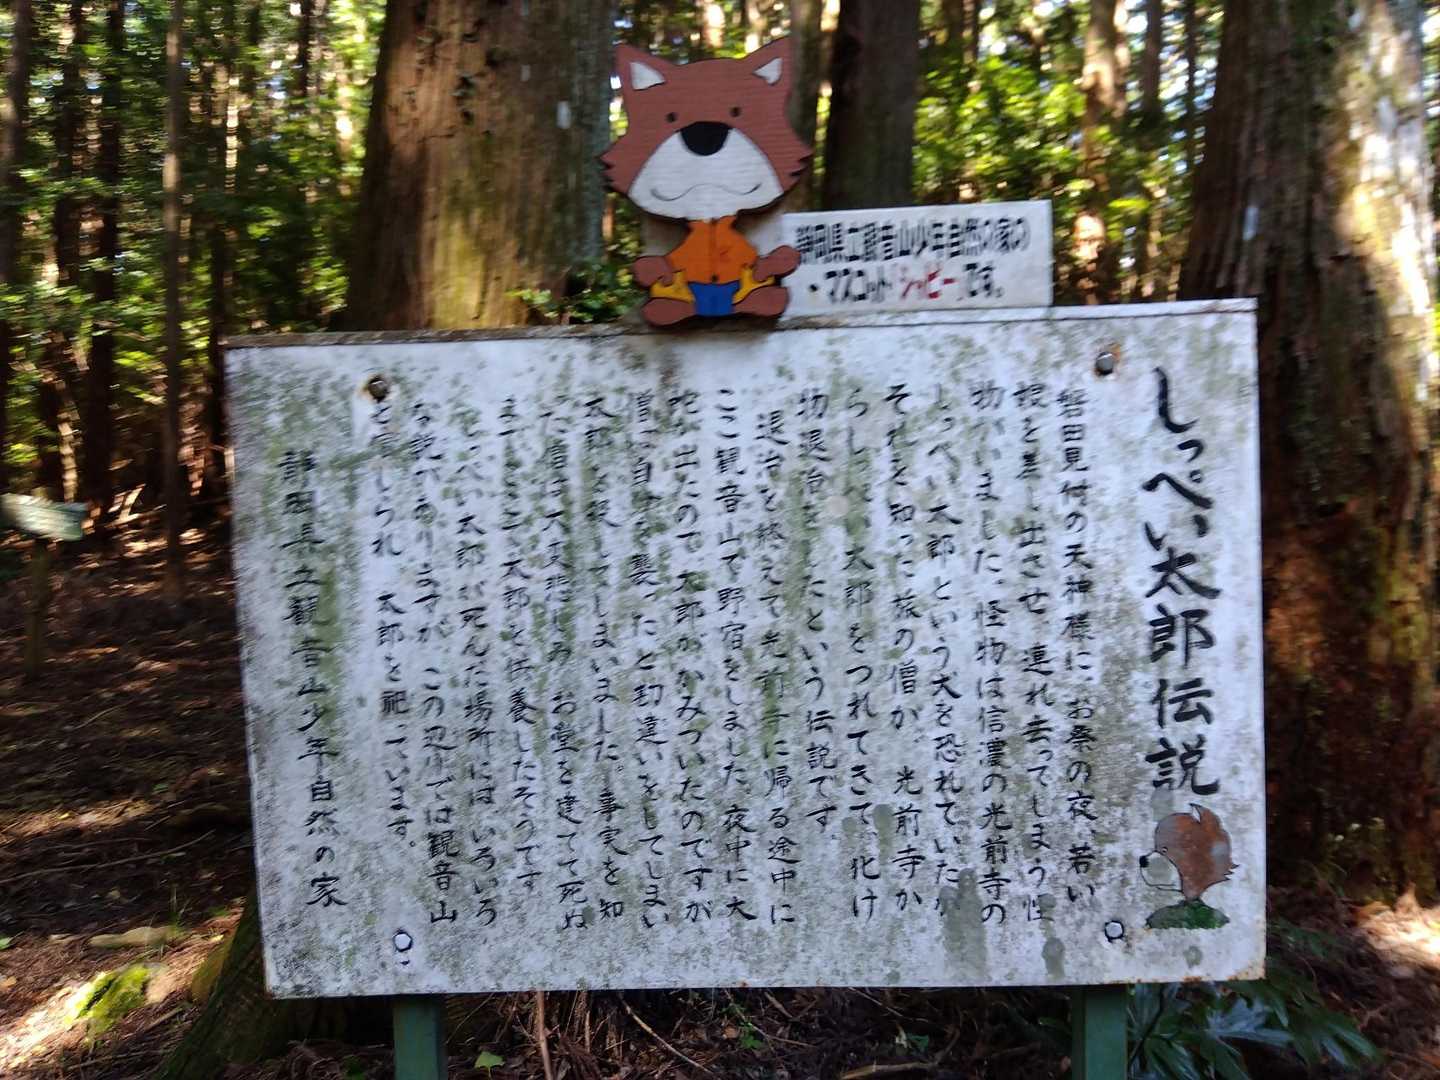 静岡県立観音山少年自然の家の
・マスコット「シッピー」です。
しっぺい太郎伝説
磐田見付の天神様に、お祭の夜、若い
娘を差し出させ、連れ去ってしまう怪
物がいました。怪物は信濃の光前寺の
しっぺい太郎という犬を恐れていたが
それを知った旅の僧が、光前寺か
らしっぺい太郎をつれてきて、化け
物退治をしたという伝説です。
退治を終えて光前寺に帰る途中に
ここ観音山で野宿をしました。夜中に大
蛇が出たので、太郎がかみついたのですが
僧は自分を襲ったと勘違いをしてしまい
太郎を殺してしまいました。事実を知
った僧は大変悲しみ、お堂を建てて死ぬ
までここで太郎を供養したそうです
しっぺい太郎が死んだ場所には、いろいろ
な説がありますが、この辺りでは観音山
と信じられ 太郎を祀っています。
静岡県立観音山少年自然の家